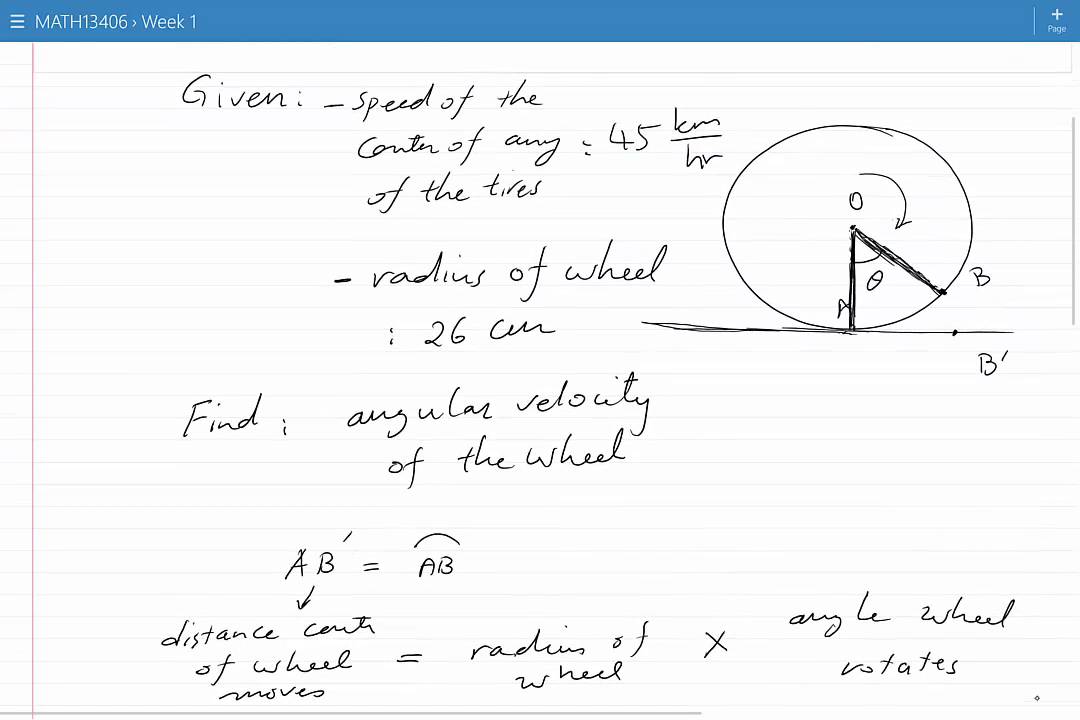 MATH13406 › Week 1
Page
Given: - speed of the
center of any : 45 km/hr
of the tires
- radius of wheel
: 26 cm
O
θ
A
B
B'
Find: angular velocity
of the wheel
AB' = AB
distance cent
of wheel = radius of wheel × angle wheel rotates
moves